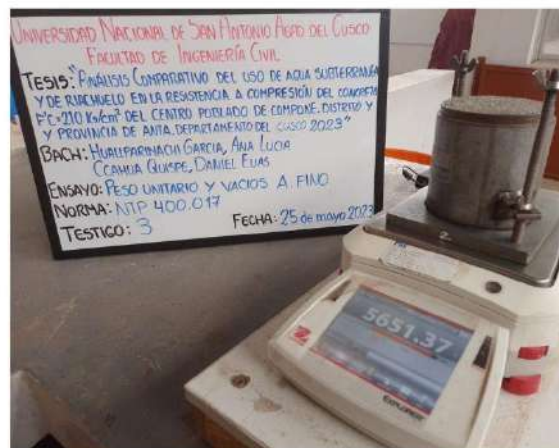 UNIVERSIDAD NACIONAL DE SAN ANTONIO ABAD DEL CUSCO
FACULTAD DE INGENIERÍA CIVIL
TESIS: "ANÁLISIS COMPARATIVO DEL USO DE AGUA SUBTERRANEA
Y DE RIACHUELO EN LA RESISTENCIA A COMPRESIÓN DEL CONCRETO
F'C=210 KG/cm² DEL CENTRO POBLADO DE COMPONE, DISTRITO Y
Y PROVINCIA DE ANTA, DEPARTAMENTO DEL CUSCO 2023"
BACH: HUALLPARIMACHI GARCIA, ANA LUCIA
CCAHUA QUISPE, DANIEL ELIAS
ENSAYO: PESO UNITARIO Y VACIOS A. FINO
NORMA: NTP 400.017
TESTIGO: 3 FECHA: 25 de mayo 2023
2
5651.37
EXPLORER